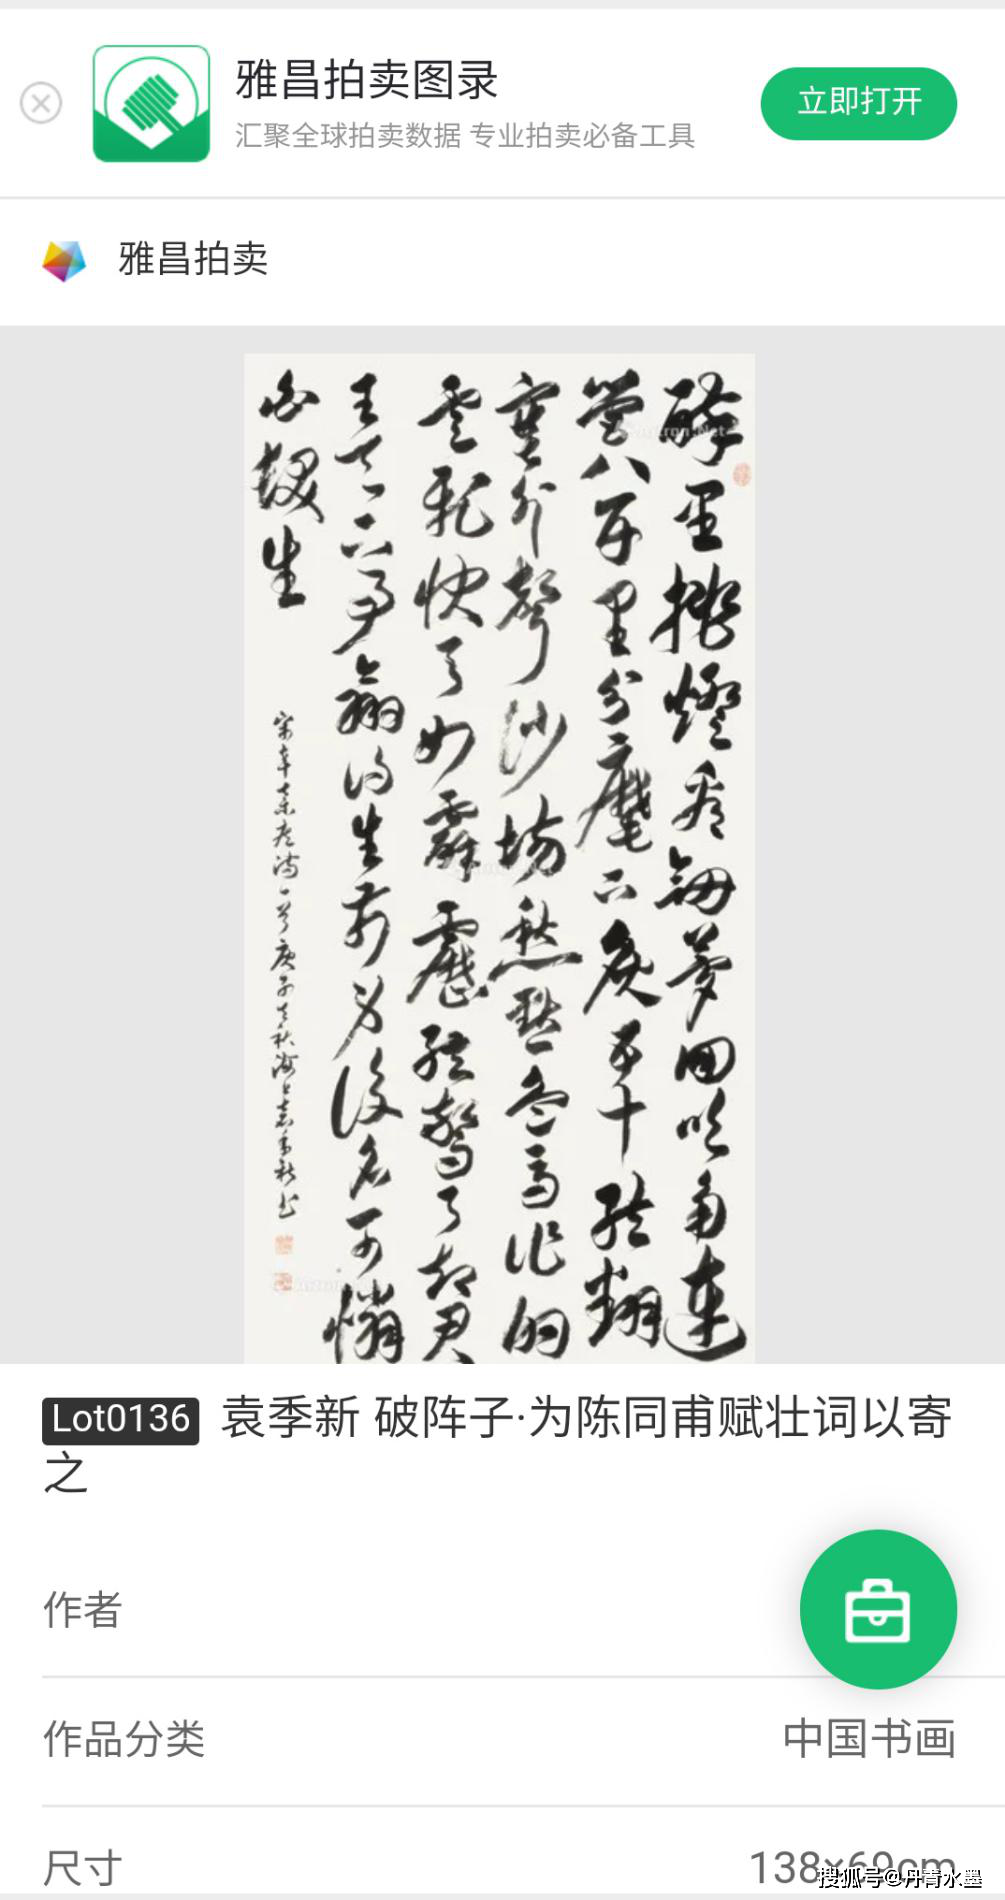 雅昌拍卖图录
汇聚全球拍卖数据 专业拍卖必备工具
立即打开
雅昌拍卖
醉里挑燈看劍夢回吹角連
營八百里分麾下炙五十弦翻
塞外聲沙場秋點兵馬作的
盧飛快弓如霹靂弦驚了却君
王天下事贏得生前身後名可憐
白發生
宋辛棄疾詞一首庚子之秋海上袁季新书
Lot0136 袁季新 破阵子·为陈同甫赋壮词以寄
之
作者
作品分类
中国书画
尺寸
138×69cm
搜狐号@丹青水墨